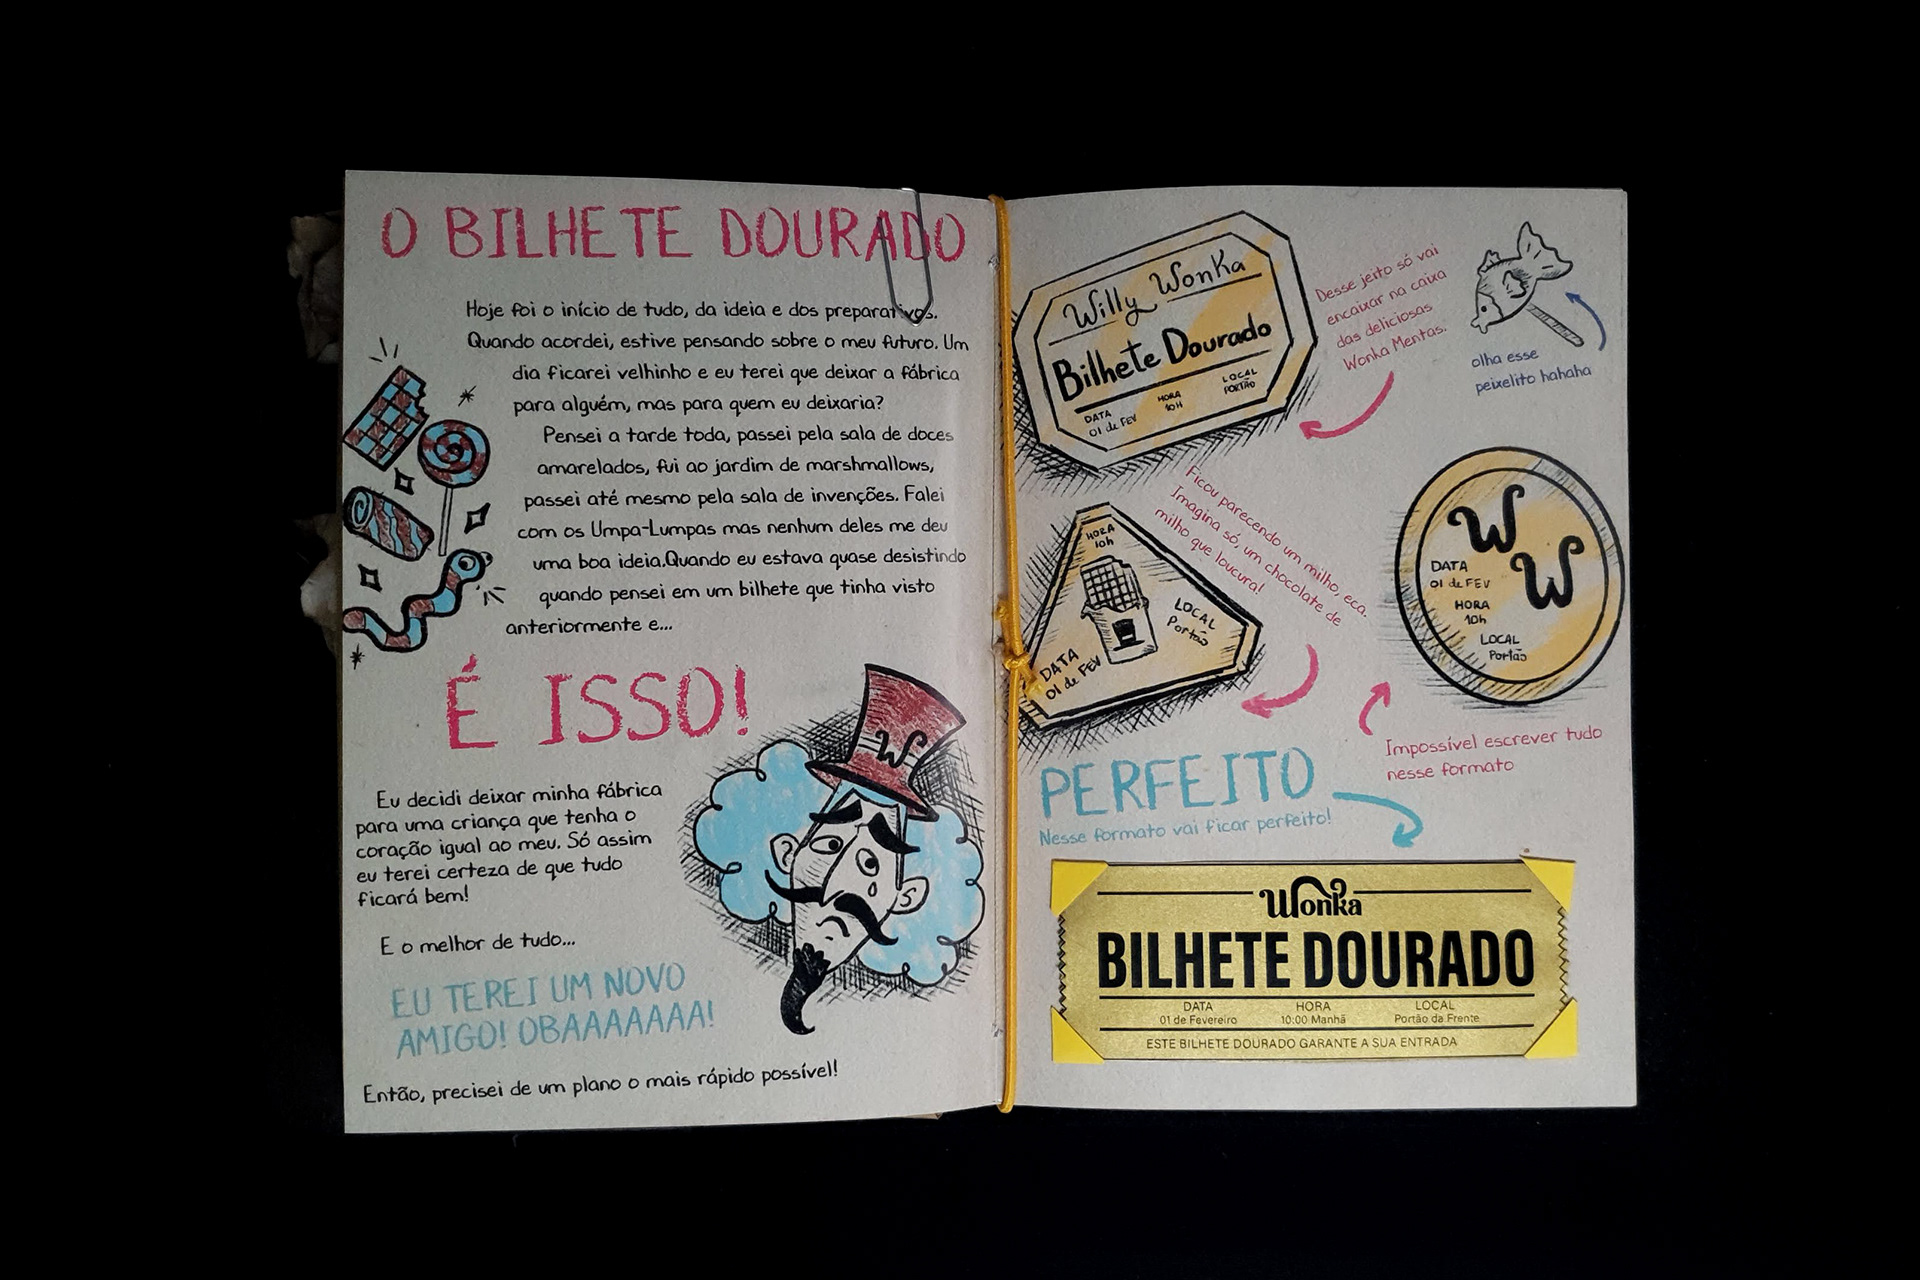 O BILHETE DOURADO
Hoje foi o início de tudo, da ideia e dos preparativos.
Quando acordei, estive pensando sobre o meu futuro. Um
dia ficarei velhinho e eu terei que deixar a fábrica
para alguém, mas para quem eu deixaria?
Pensei a tarde toda, passei pela sala de doces
amarelados, fui ao jardim de marshmallows,
passei até mesmo pela sala de invenções. Falei
com os Umpa-Lumpas mas nenhum deles me deu
uma boa ideia.Quando eu estava quase desistindo
quando pensei em um bilhete que tinha visto
anteriormente e...
É ISSO!
W
Eu decidi deixar minha fábrica
para uma criança que tenha o
coração igual ao meu. Só assim
eu terei certeza de que tudo
ficará bem!
E o melhor de tudo...
EU TEREI UM NOVO
AMIGO! OBAAAAAAA!
Então, precisei de um plano o mais rápido possível!
Willy Wonka
Bilhete Dourado
DATA
01 de FEV
HORA
10H
LOCAL
PORTÃO
Desse jeito só vai
encaixar na caixa
das deliciosas
Wonka Mentas.
olha esse
peixelito hahaha
Ficou parecendo um milho, eca.
Imagina só, um chocolate de
milho que loucura!
HORA
10h
LOCAL
Portão
DATA
01 de FEV
W
W
DATA
01 de FEV
HORA
10h
LOCAL
Portão
Impossível escrever tudo
nesse formato
PERFEITO
Nesse formato vai ficar perfeito!
Wonka
BILHETE DOURADO
DATA HORA LOCAL
01 de Fevereiro 10:00 Manhã Portão da Frente
ESTE BILHETE DOURADO GARANTE A SUA ENTRADA